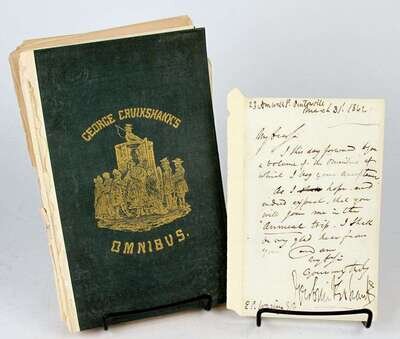 GEORGE CRUIKSHANK'S
OMNIBUS.
23 Amwell St. Pentonville
March 31. 1842
My dear
I this day forward to you
a volume of the Omnibus of
which I beg your acceptance
As I hope and
indeed expect that you
will join me in the
Annual trip. I shall
be very glad hear from
you am
My
Yours truly